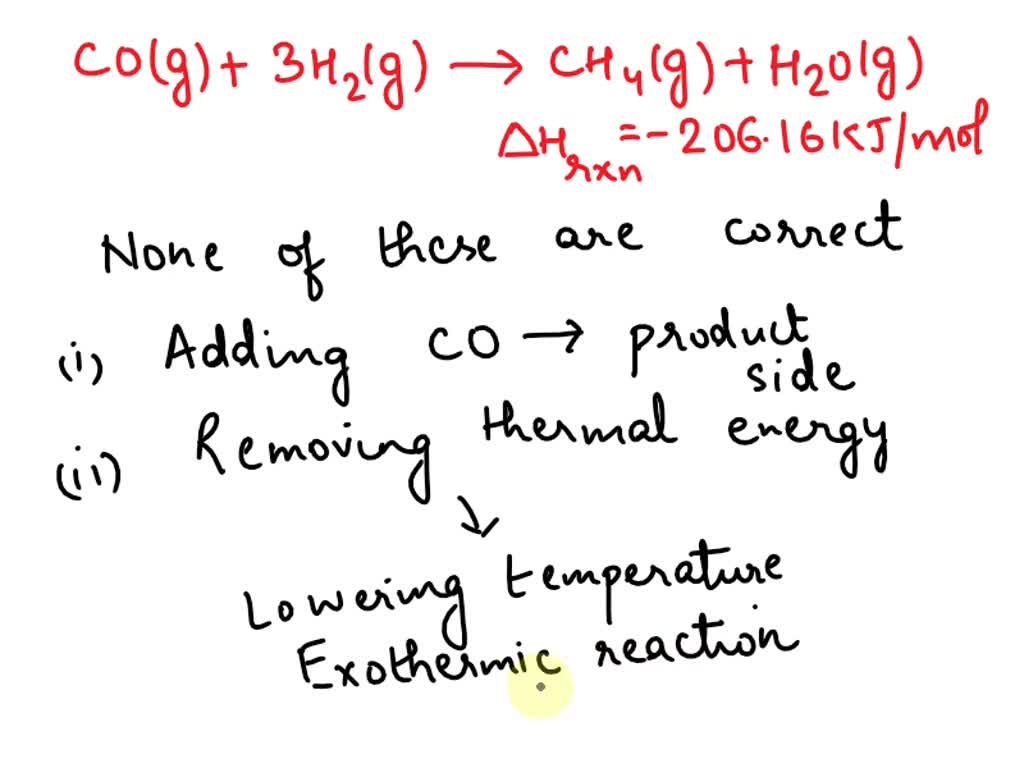 CO(g) + 3H₂(g) → CH₄(g) + H₂O(g)
ΔHrxn = -206.16 KJ/mol
None of these are correct
(i) Adding CO → product side
(ii) Removing thermal energy
↘
Lowering temperature
Exothermic reaction